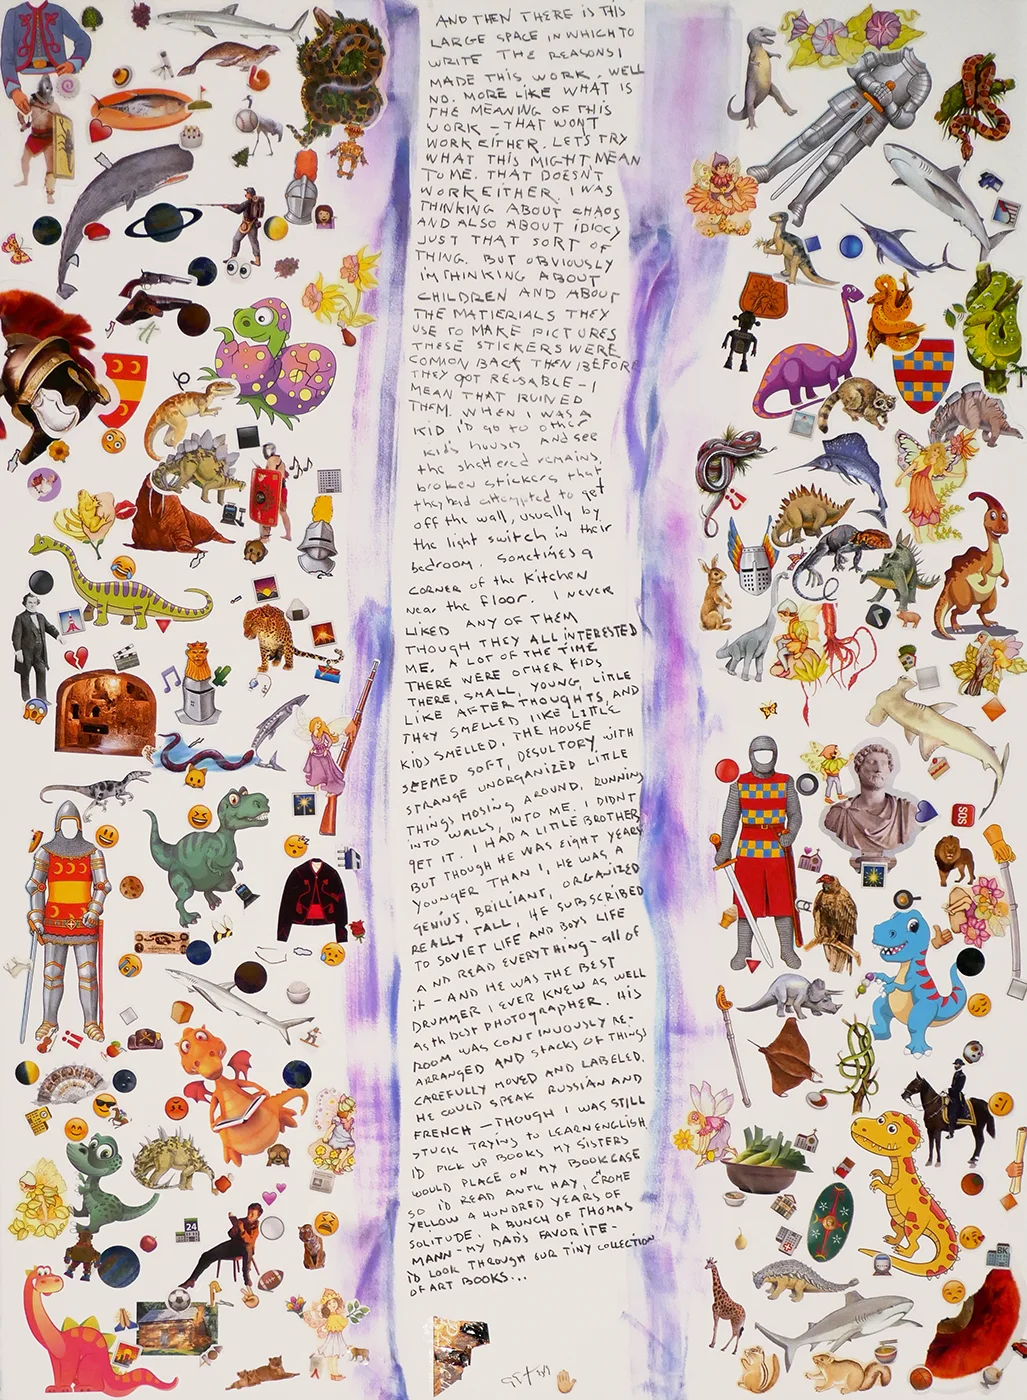 AND THEN THERE IS THIS
LARGE SPACE IN WHICH TO
WRITE THE REASONS I
MADE THIS WORK. WELL
NO. MORE LIKE WHAT IS
THE MEANING OF THIS
WORK - THAT WON'T
WORK EITHER. LET'S TRY
WHAT THIS MIGHT MEAN
TO ME. THAT DOESN'T
WORK EITHER. I WAS
THINKING ABOUT CHAOS
AND ALSO ABOUT IDIOCY
JUST THAT SORT OF
THING. BUT OBVIOUSLY
I'M THINKING ABOUT
CHILDREN AND ABOUT
THE MATIERIALS THEY
USE TO MAKE PICTURES
THESE STICKERS WERE
COMMON BACK THEN BEFORE
THEY GOT REUSABLE - I
MEAN THAT RUINED
THEM. WHEN I WAS A
KID I'D GO TO OTHER
KID'S HOUSES AND SEE
the shattered remains,
broken stickers that
they had attempted to get
off the wall, usually by
the light switch in their
bedroom. Sometimes a
CORNER of the Kitchen
NEAR the FLOOR. I NEVER
LIKED ANY OF THEM
THOUGH THEY ALL INTERESTED
ME. A LOT OF THE TIME
THERE WERE OTHER KIDS
THERE, SMALL, YOUNG, LITTLE
LIKE AFTERTHOUGHTS, AND
THEY SMELLED LIKE LITTLE
KIDS SMELLED. THE HOUSE
SEEMED SOFT, DESULTORY WITH
STRANGE UNORGANIZED LITTLE
THINGS MOSING AROUND, RUNNING
INTO WALLS, INTO ME. I DIDN'T
GET IT. I HAD A LITTLE BROTHER
BUT THOUGH HE WAS EIGHT YEARS
YOUNGER THAN I, HE WAS A
GENIUS, BRILLIANT, ORGANIZED
REALLY TALL, HE SUBSCRIBED
TO SOVIET LIFE AND BOYS LIFE
AND READ EVERYTHING - all OF
it - AND HE WAS THE BEST
DRUMMER I EVER KNEW AS WELL
AS th BEST PHOTOGRAPHER. HIS
ROOM WAS CONTINUOUSLY RE-
ARRANGED AND STACKS OF THINGS
CAREFULLY MOVED AND LABELED.
HE COULD SPEAK RUSSIAN AND
FRENCH - THOUGH I WAS STILL
STUCK TRYING TO LEARN ENGLISH
I'D PICK UP BOOKS MY SISTERS
WOULD PLACE ON MY BOOKCASE
SO I'D READ ANTIC HAY, CROME
YELLOW A HUNDRED YEARS OF
SOLITUDE. A BUNCH OF THOMAS
MANN - MY DAD'S FAVORITE -
I'D LOOK THROUGH OUR TINY COLLECTION
OF ART BOOKS...
SOS
24
BK